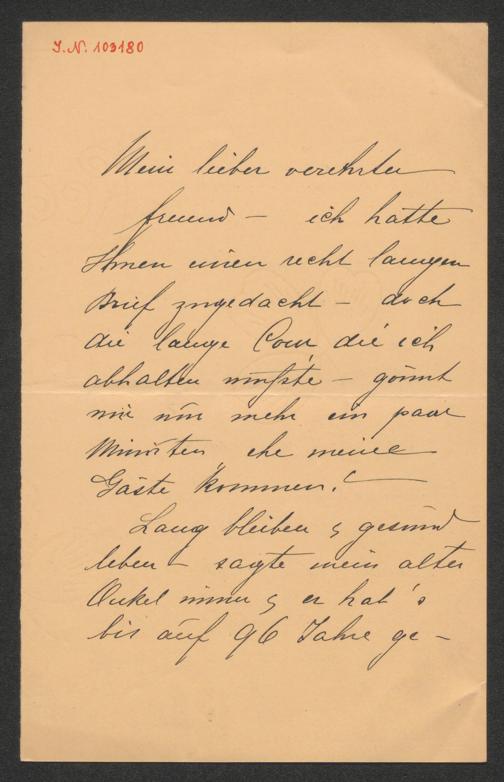 J.N. 103180
Mein lieber verehrter
Freund – ich hatte
Ihnen einen recht langen
Brief zugedacht – doch
die lange Cour die ich
abhalten mußte – gönnt
mir nur mehr ein paar
Minuten ehe meine
Gäste kommen!
Lang bleiben & gesund
leben – sagte mein alter
Onkel immer & er hat's
bis auf 96 Jahre ge–